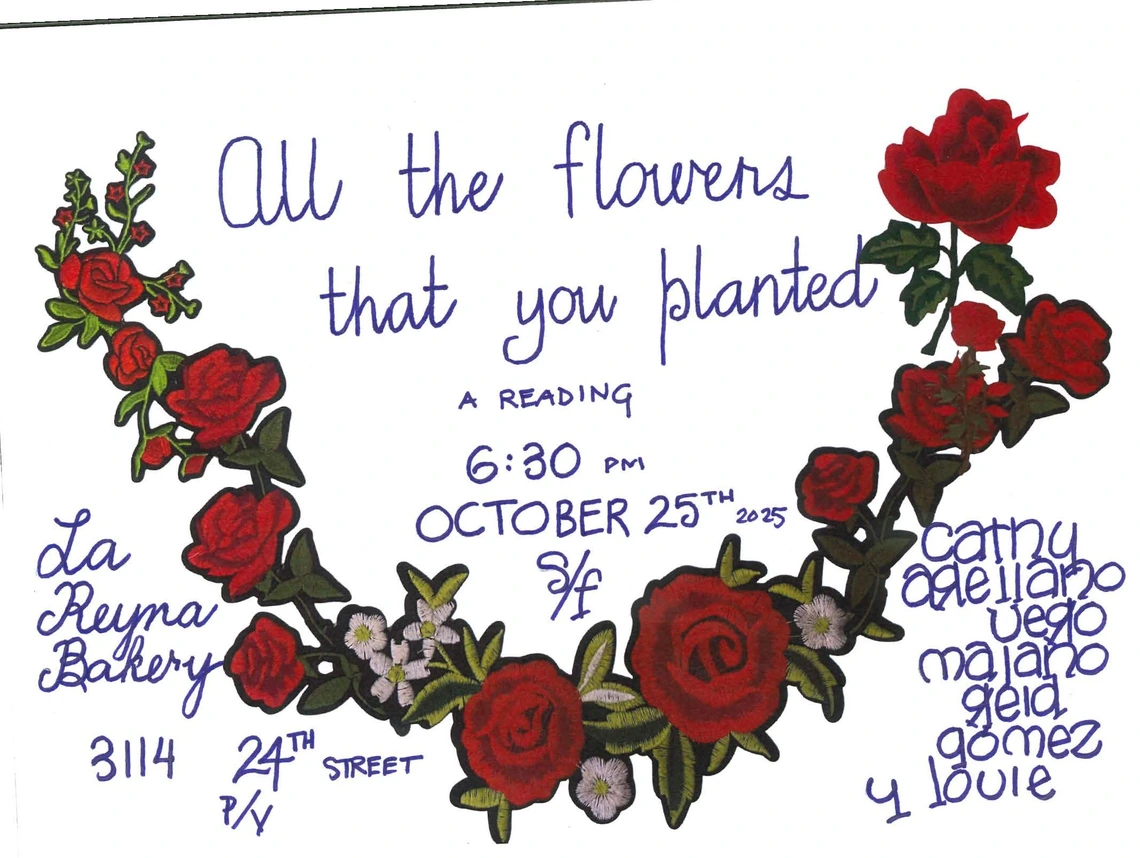 All the flowers
that you planted
A READING
6:30 PM
OCTOBER 25TH 2025
S/f
La
Reyna
Bakery
3114 24TH STREET
P/V
cathy
arellano
vego
majano
reid
gómez
y louie